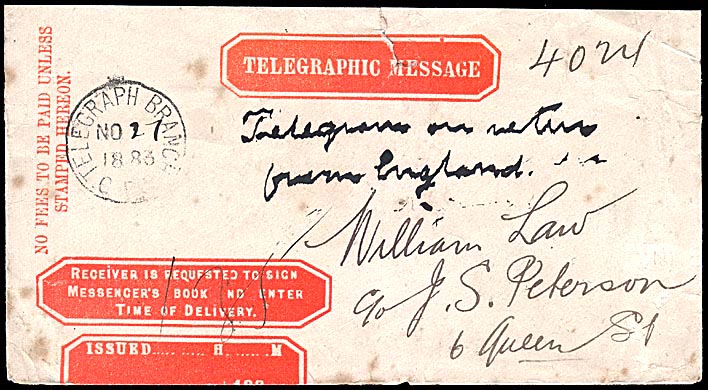 TELEGRAPHIC MESSAGE
402
NO FEES TO BE PAID UNLESS
STAMPED HEREON.
TELEGRAPH BRANCH
NO 27
1883
Telegram on return
from England.
William Law
c/o J. S. Peterson
6 Queen St
RECEIVER IS REQUESTED TO SIGN
MESSENGER'S BOOK ND ENTER
TIME OF DELIVERY.
ISSUED H. M